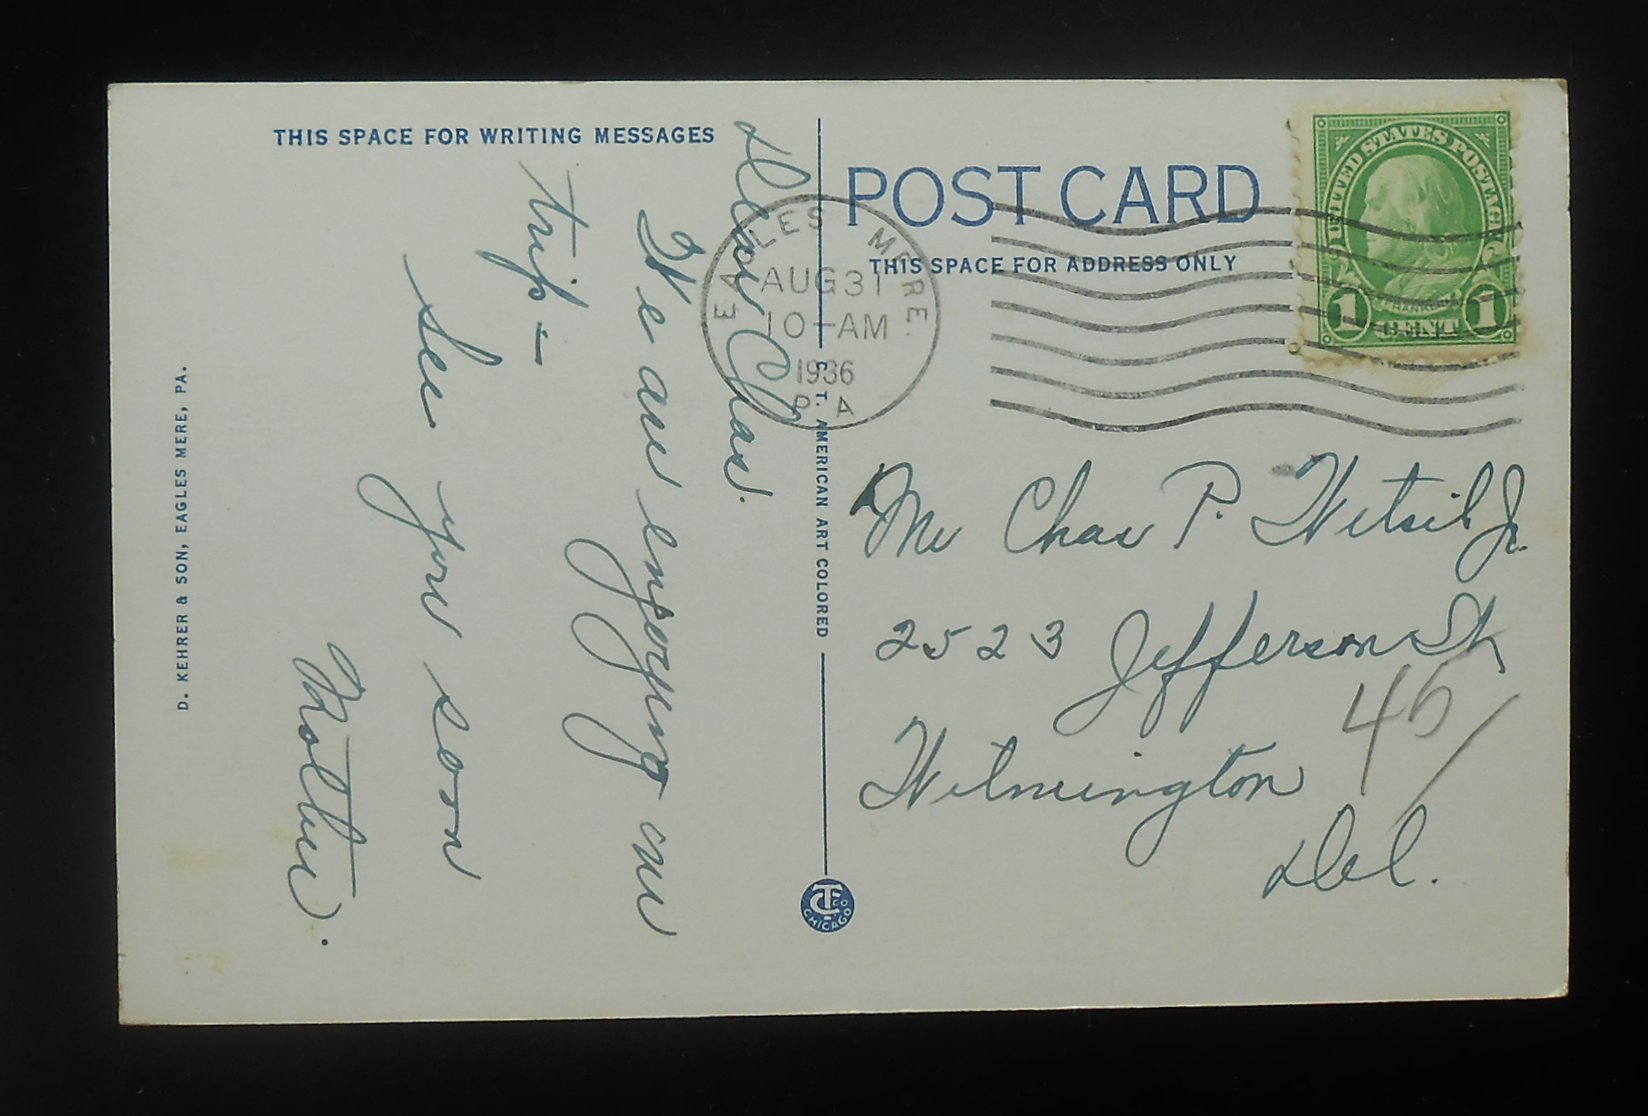 THIS SPACE FOR WRITING MESSAGES
Dear Chas.
We are enjoying our
trip =
See you soon
Mother.
D. KEHRER & SON, EAGLES MERE, PA.
C. T. AMERICAN ART COLORED
CTCO
CHICAGO
POST CARD
THIS SPACE FOR ADDRESS ONLY
EAGLES MERE.
AUG 31
10-AM
1936
PA
UNITED STATES POSTAGE
FRANKLIN
1 CENT 1
Mr Chas P. Wetsil Jr.
2523 Jefferson St
Wilmington
Del.